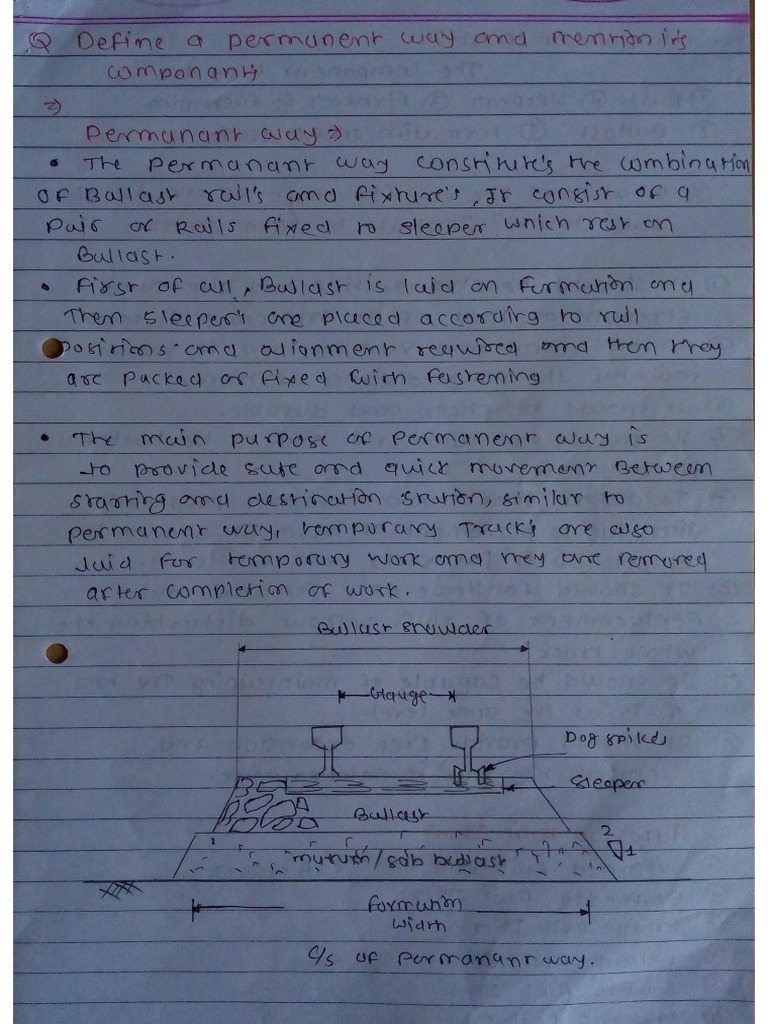 Q Define a permanent way and mention it's
componants
⇒
Permanant way ⇒
• The permanant way constitute's the combination
of Ballast rail's and fixture's, It consist of a
Pair of Rails fixed to sleeper which rest on
Ballast.
• First of all, Ballast is laid on formation and
Then sleeper's are placed according to rail
positions and alignment required and then they
are packed or fixed with fastening
• The main purpose of permanent way is
to provide safe and quick movement Between
starting and destination station, similar to
permanent way, temporary Track's are also
laid for temporary work and they are removed
after completion of work.
Ballast shoulder
Gauge
Dog spikes
Sleeper
Ballast
2
1
murum/sob ballast
formation
width
c/s of permanant way.